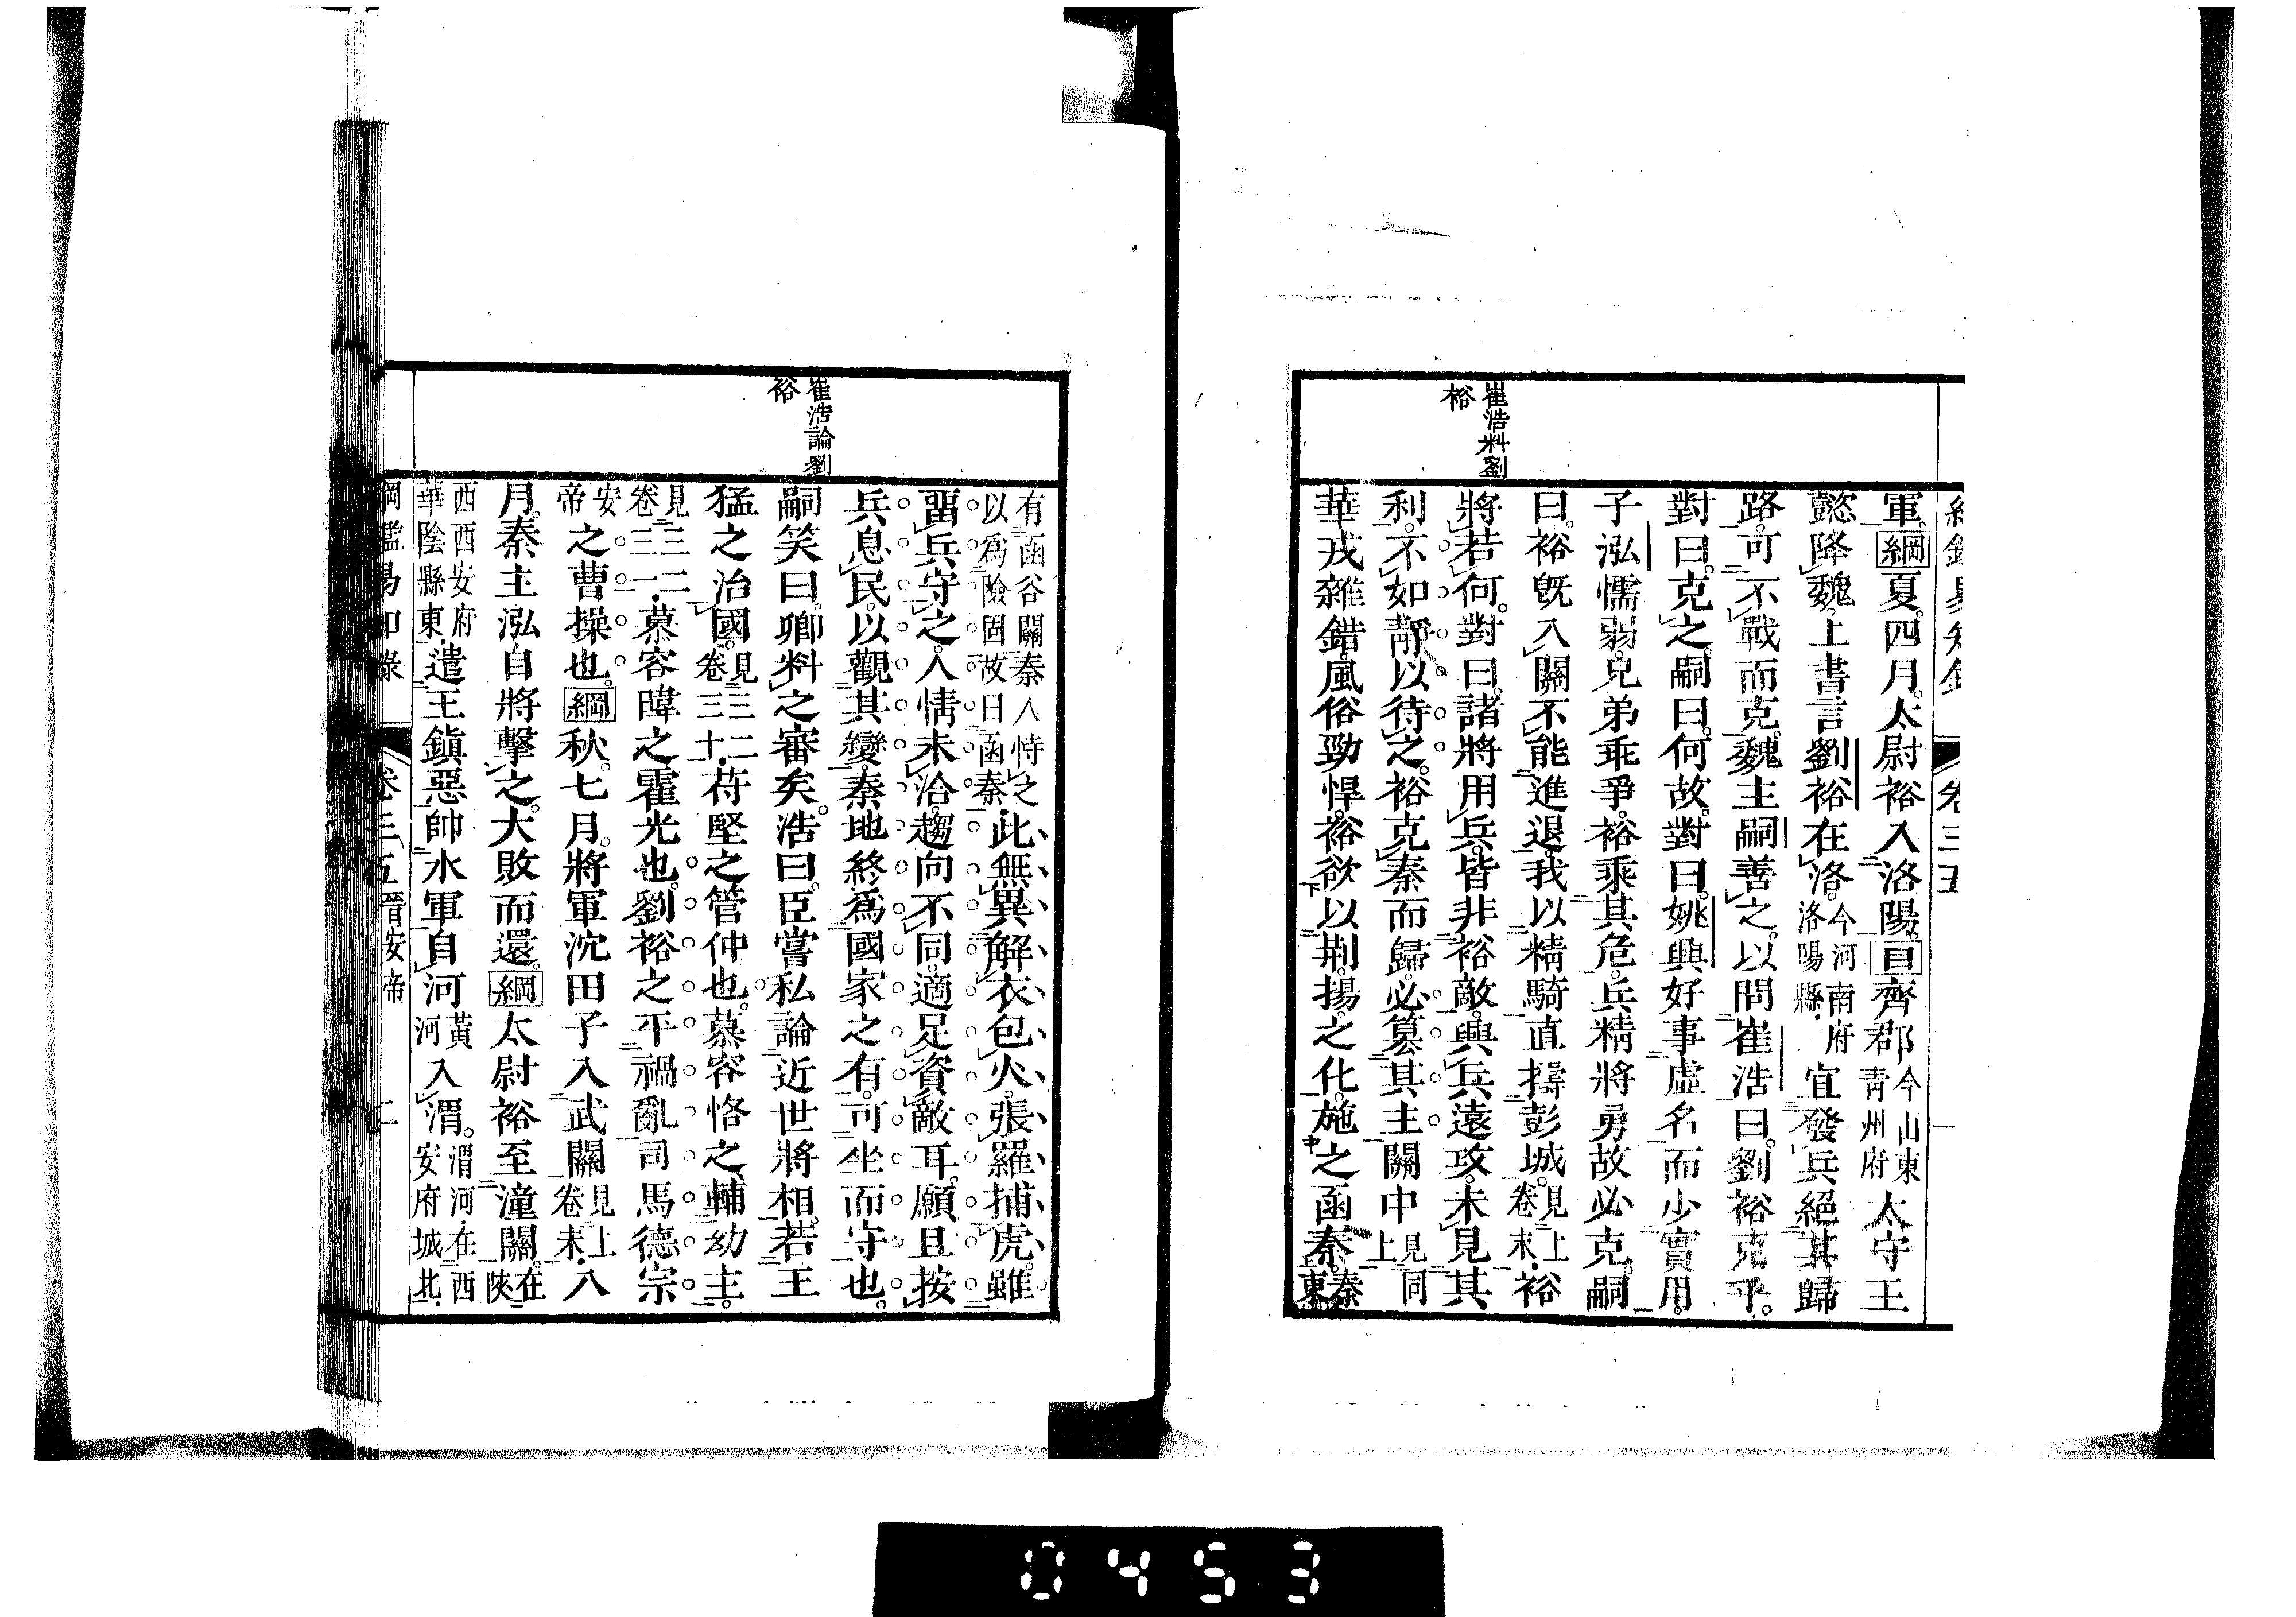 崔浩料劉
裕
軍。綱夏。四月。太尉裕入洛陽。目齊郡今山東青州府太守王
懿降魏。上書言劉裕在洛。今河南府洛陽縣。宜發兵絕其歸
路。可不戰而克。魏主嗣善之。以問崔浩曰。劉裕克乎。
對曰。克之。嗣曰。何故。對曰。姚興好事虛名。而少實用。
子泓懦弱。兄弟乖爭。裕乘其危。兵精將勇。故必克。嗣
曰。裕旣入關。不能進退。我以精騎直擣彭城。見上卷末。裕
將若何。對曰。諸將用兵。皆非裕敵。興兵遠攻。未見其
利。不如靜以待之。裕克秦而歸。必篡其主。關中見同上
華戎雜錯。風俗勁悍。裕欲以荆揚之化。施之函秦。秦東
崔浩論劉
裕
有函谷關秦人恃之以爲險固故曰函秦。此無異解衣包火。張羅捕虎。雖
畱兵守之。人情未洽。趨向不同。適足資敵耳。願且按
兵息民。以觀其變。秦地終爲國家之有。可坐而守也。
嗣笑曰。卿料之審矣。浩曰。臣嘗私論近世將相。若王
猛之治國。見三二卷三十。苻堅之管仲也。慕容恪之輔幼主。
見三二卷三一。慕容暐之霍光也。劉裕之平禍亂。司馬德宗
安帝之曹操也。綱秋。七月。將軍沈田子入武關。見上卷末。八
月。秦主泓自將擊之。大敗而還。綱太尉裕至潼關。在陝
西西安府華陰縣東。遣王鎭惡帥水軍自河黃河入渭。渭河在西安府城北。
綱鑑易知錄 卷三五 晉安帝 二